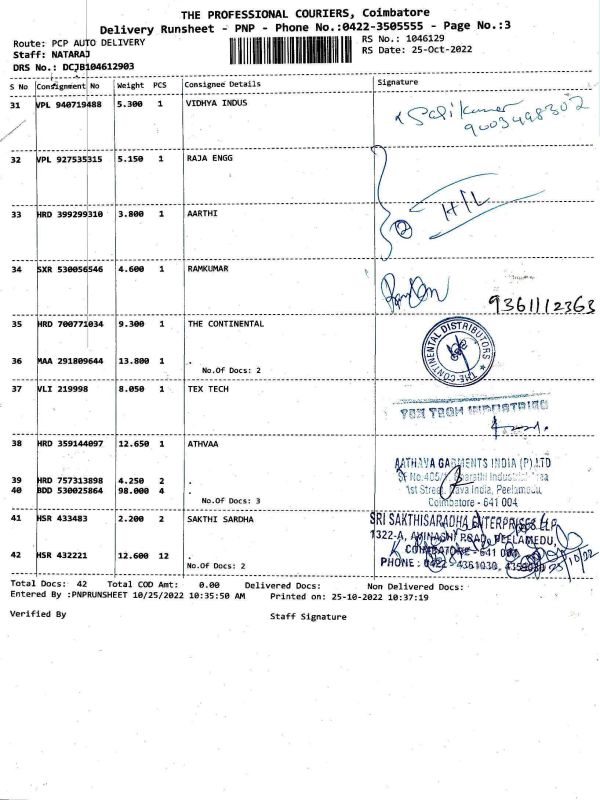 THE PROFESSIONAL COURIERS, Coimbatore
Delivery Runsheet - PNP - Phone No.:0422-3505555 - Page No.:3
Route: PCP AUTO DELIVERY
RS No.: 1046129
Staff: NATARAJ
RS Date: 25-Oct-2022
DRS No.: DCJB104612903
S No Consignment No Weight PCS Consignee Details Signature
31 VPL 940719488 5.300 1 VIDHYA INDUS
9003498302
32 VPL 927535315 5.150 1 RAJA ENGG
33 HRD 399299310 3.800 1 AARTHI
2 HIL
34 SXR 530056546 4.600 1 RAMKUMAR
9361112363
35 HRD 700771034 9.300 1 THE CONTINENTAL
THE CONTINENTAL DISTRIBUTORS
36 MAA 291809644 13.800 1 .
No.Of Docs: 2
37 VLI 219998 8.050 1 TEX TECH
TEX TECH INDUSTRIES
38 HRD 359144097 12.650 1 ATHVAA
AATHAVA GARMENTS INDIA (P) LTD
SF No.405/ Bharathi Industrial Area
39 HRD 757313898 4.250 2 .
1st Street, Nava India, Peelamedu,
40 BDD 530025864 98.000 4 .
Coimbatore - 641 004
No.Of Docs: 3
41 HSR 433483 2.200 2 SAKTHI SARDHA
SRI SAKTHISARADHA ENTERPRISES LLP
1322-A, AVINASHI ROAD, PEELAMEDU,
COIMBATORE - 641 004
42 HSR 432221 12.600 12 .
PHONE : 0422 - 4361030, 4359030
25/10/22
No.Of Docs: 2
Total Docs: 42 Total COD Amt: 0.00 Delivered Docs: Non Delivered Docs:
Entered By :PNPRUNSHEET 10/25/2022 10:35:50 AM Printed on: 25-10-2022 10:37:19
Verified By Staff Signature